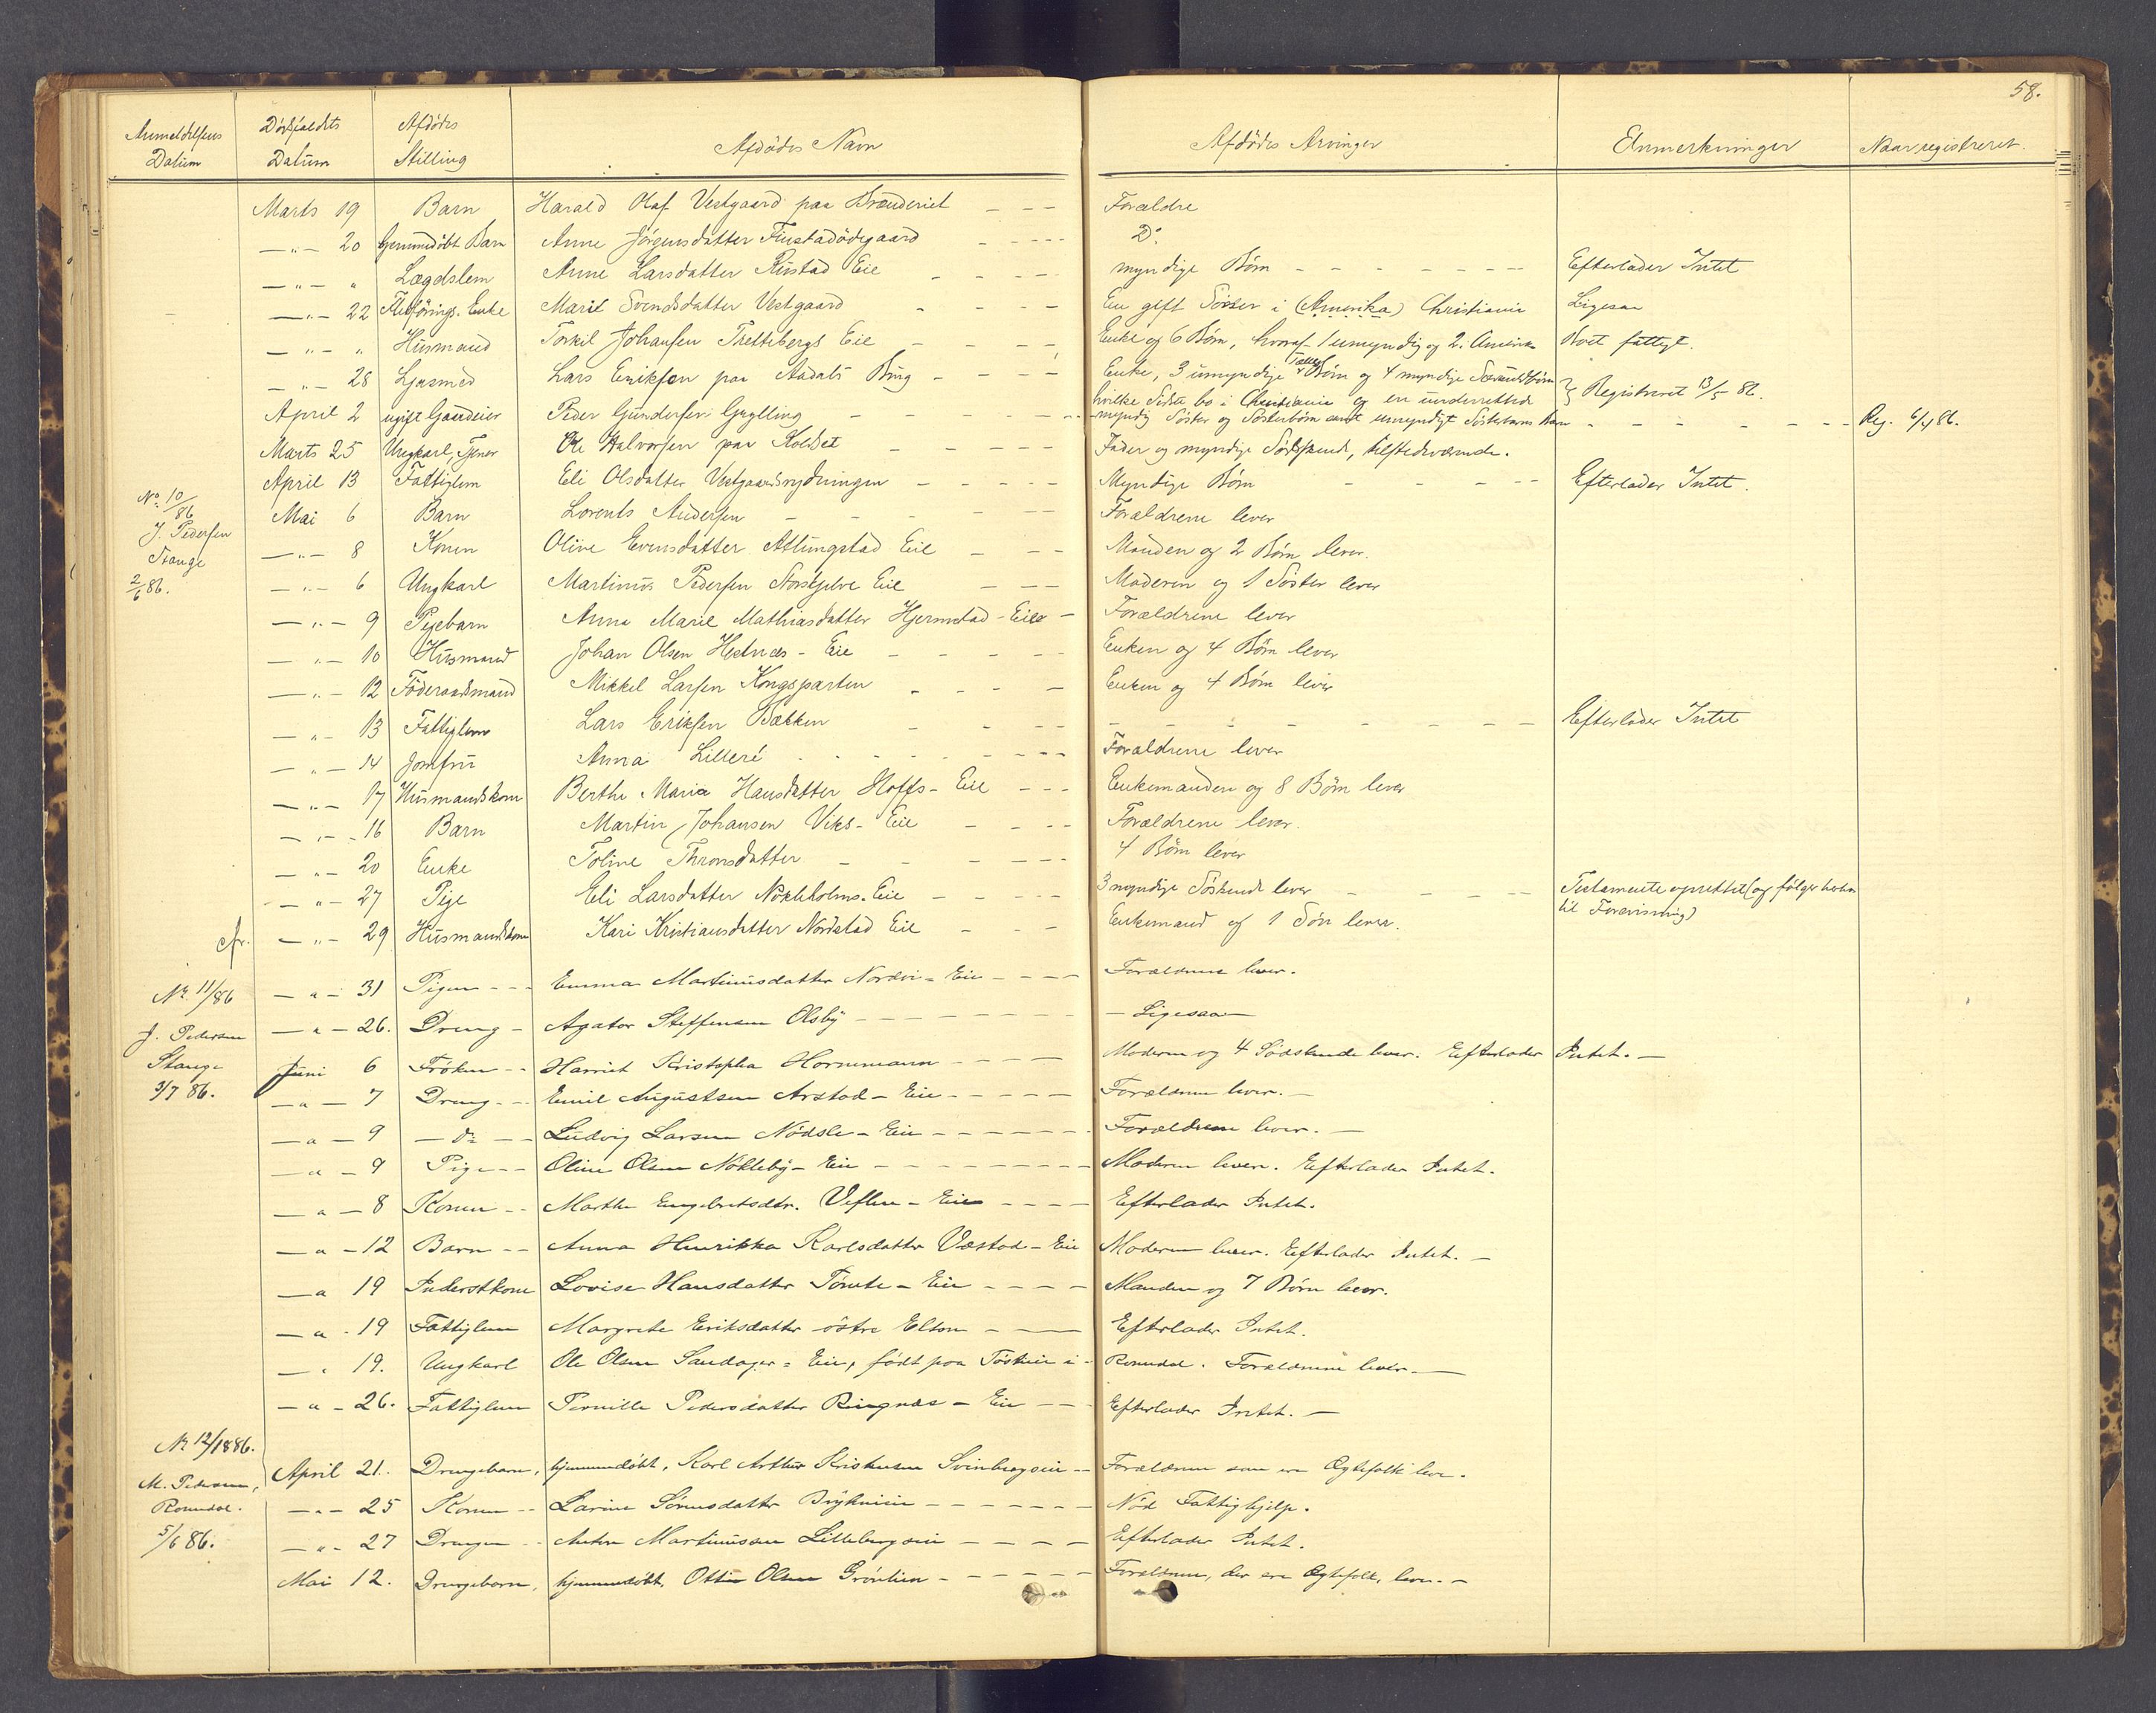 58.
Anmeldelsens Datum Dödsfaldets Datum Afdödes Stilling Afdödes Navn Afdödes Arvinger Anmerkninger Naar registreret.
Marts 19 Barn Harald Olaf Vestgaard paa Brænderiet - - - Forældre
—"— 20 hjemmedöbt Barn Anne Jörgensdatter Finstadödegaard - - - - D°.
—"— " Lægdslem Anne Larsdatter Rustad Eie - - - - myndige Börn - - - - - - - Efterlader Intet
—"— 22 Flytförings. Enke Marit Svendsdatter Vestgaard - - - En gift Söster i (Amerika) Christiania Ligesaa
—"— " Husmand Torkil Johansen Theltebergs Eie - - - - Enke og 6 Börn, hvoraf 1 umyndig og 2. Amerika Boet fattigt.
—"— 28 Lysmed Lars Eriksen paa Aadals Brug - - - - Enke, 3 umyndige fælles Börn og 4 myndige Særkuldbörn
hvilke Sidste bo i Christiania og en underrettede } Registreret 13/5 86.
April 2 ugift Gaardeier Peder Gundersen Grylling - - - - myndig Söster og Sösterbörn samt umyndigt Sösterbarns Barn - - - - - - Reg. 6/4 86.
Marts 25 Ungkarl, Tjener Ole Halvorsen paa Koldset - - - - - Fader og myndige Södskende, tilstedeværende.
April 13 Fattiglem Eli Olsdatter Vestgaardsrydningen - - - - - Myndige Börn - - - - Efterlader Intet.
No. 10/86 Mai 6 Barn Lorents Andersen - - - - - Forældrene lever
J. Pedersen —"— 8 Konen Oline Evensdatter Atlungstad Eie - - - Manden og 2 Börn lever.
Stange
2/6 86. —"— 6 Ungkarl Martinus Pedersen Storskjelve Eie - - - Moderen og 1 Söster lever
—"— 9 Pigebarn Anna Marie Mathiasdatter Hjermstad-Eie - Forældrene lever
—"— 10 Husmand Johan Olsen Hestnæs-Eie - - - - - Enken og 4 Börn lever
—"— 12 Föderaadsmand Mikkel Larsen Kongsparten - - - - Enken og 4 Börn lever
—"— 13 Fattiglem Lars Eriksen Bækken - - - - - - - - - - - Efterlader Intet
—"— 14 Jomfru Anna Lilleré - - - - - - - Forældrene lever
—"— 17 Husmandskone Berthe Maria Hansdatter Hoffs-Eie - - - Enkemanden og 8 Börn lever
—"— 16 Barn Martin Johansen Viks-Eie - - - - Forældrene lever.
—"— 20 Enke Toline Thronsdatter - - - - - - 4 Börn lever
—"— 27 Pige Eli Larsdatter Nökleholms-Eie - - - - - 3 myndige Söskende lever - - - - Testamente oprettet (og fölger herhen
til Forevisning)
—"— 29 Husmandskone Kari Kristiansdatter Nordstad Eie - - - Enkemand og 1 Sön lever.
No. 11/86 —"— 31 Pigen - - - Emma Martinusdatter Nordvi-Eie - - - - Forældrene lever.
J. Pedersen —"— 26. Dreng - Agator Steffensen Olsby - - - - - - - - - Ligesaa —
Stange Juni 6 Fröken - - Harriet Kristopha Hornemann - - - - Moderen og 4 Södskende lever. Efterlader Intet. —
3/7 86. —"— 7 Dreng - - Emil Augustsen Arstad-Eie - - - - - Forældrene lever. —
—"— 9 — do — - Ludvig Larsen Nödsle-Eie - - - - - - Forældrene lever. —
—"— 9 Pige - - Oline Olsen Nökleby-Eie - - - - - - - - Moderen lever. Efterlader Intet.
—"— 8 Konen - - Marthe Engebretsdtr. Veflen-Eie - - - - Efterlader Intet.
—"— 12 Barn - - Anna Henrikka Karlsdatter Væstad-Eie Moderen lever. Efterlader Intet. —
—" 19 Inderstkone Lovise Hansdatter Tömte-Eie - - - - Manden og 7 Börn lever.
—"- 19 Fattiglem Margrete Eriksdatter östre Elton - — Efterlader Intet.
—" 19. Ungkarl Ole Olsen Sandager-Eie, födt paa Töskeie i Romedal. Forældrene lever. —
—"- 26. Fattiglem Pernille Pedersdatter Ringnæs-Eie - - - Efterlader Intet. —
No. 12/1886.
M. Pedersen, April 21. Drengebarn, hjemmedöbt, Karl Arthur Kristensen Svinbergeie - - Forældrene som ere Ægtefolk lever.
Romedal. —"— 25 Konen - - Larine Sörensdatter Brÿknieie - - - - - - Nöd Fattighjelp.
5/6 86. —"- 27 Drengen - - Anton Martinussen Lillebergeie - - - - Efterlader Intet.
Mai 12. Drengebarn, hjemmedöbt, Ottin Olsen Grönlien - - - - - Forældrene, der ere Ægtefolk, lever. —